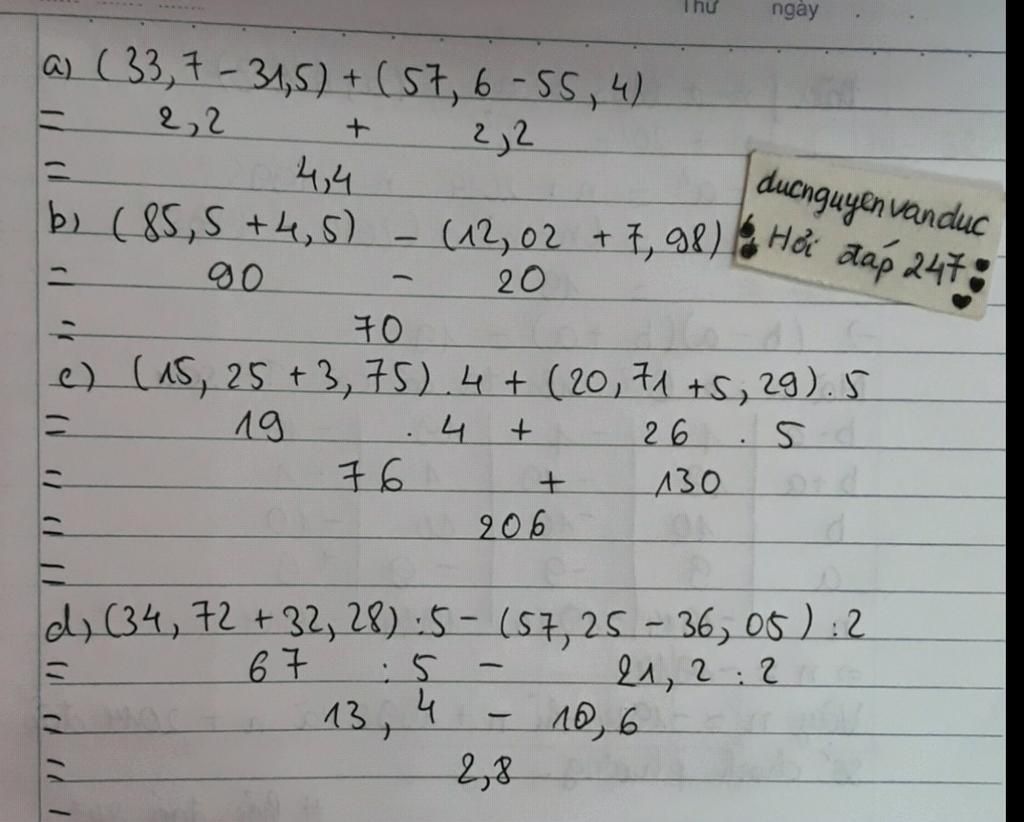 Thứ ngày . .
a) (33,7 - 31,5) + (57,6 - 55,4)
= 2,2 + 2,2
= 4,4
b) (85,5 + 4,5) - (12,02 + 7,98)
= 90 - 20
= 70
ducnguyenvanduc
Hỏi đáp 247
c) (15,25 + 3,75) . 4 + (20,71 + 5,29) . 5
= 19 . 4 + 26 . 5
= 76 + 130
= 206
=
d, (34,72 + 32,28) : 5 - (57,25 - 36,05) : 2
= 67 : 5 - 21,2 : 2
= 13,4 - 10,6
= 2,8